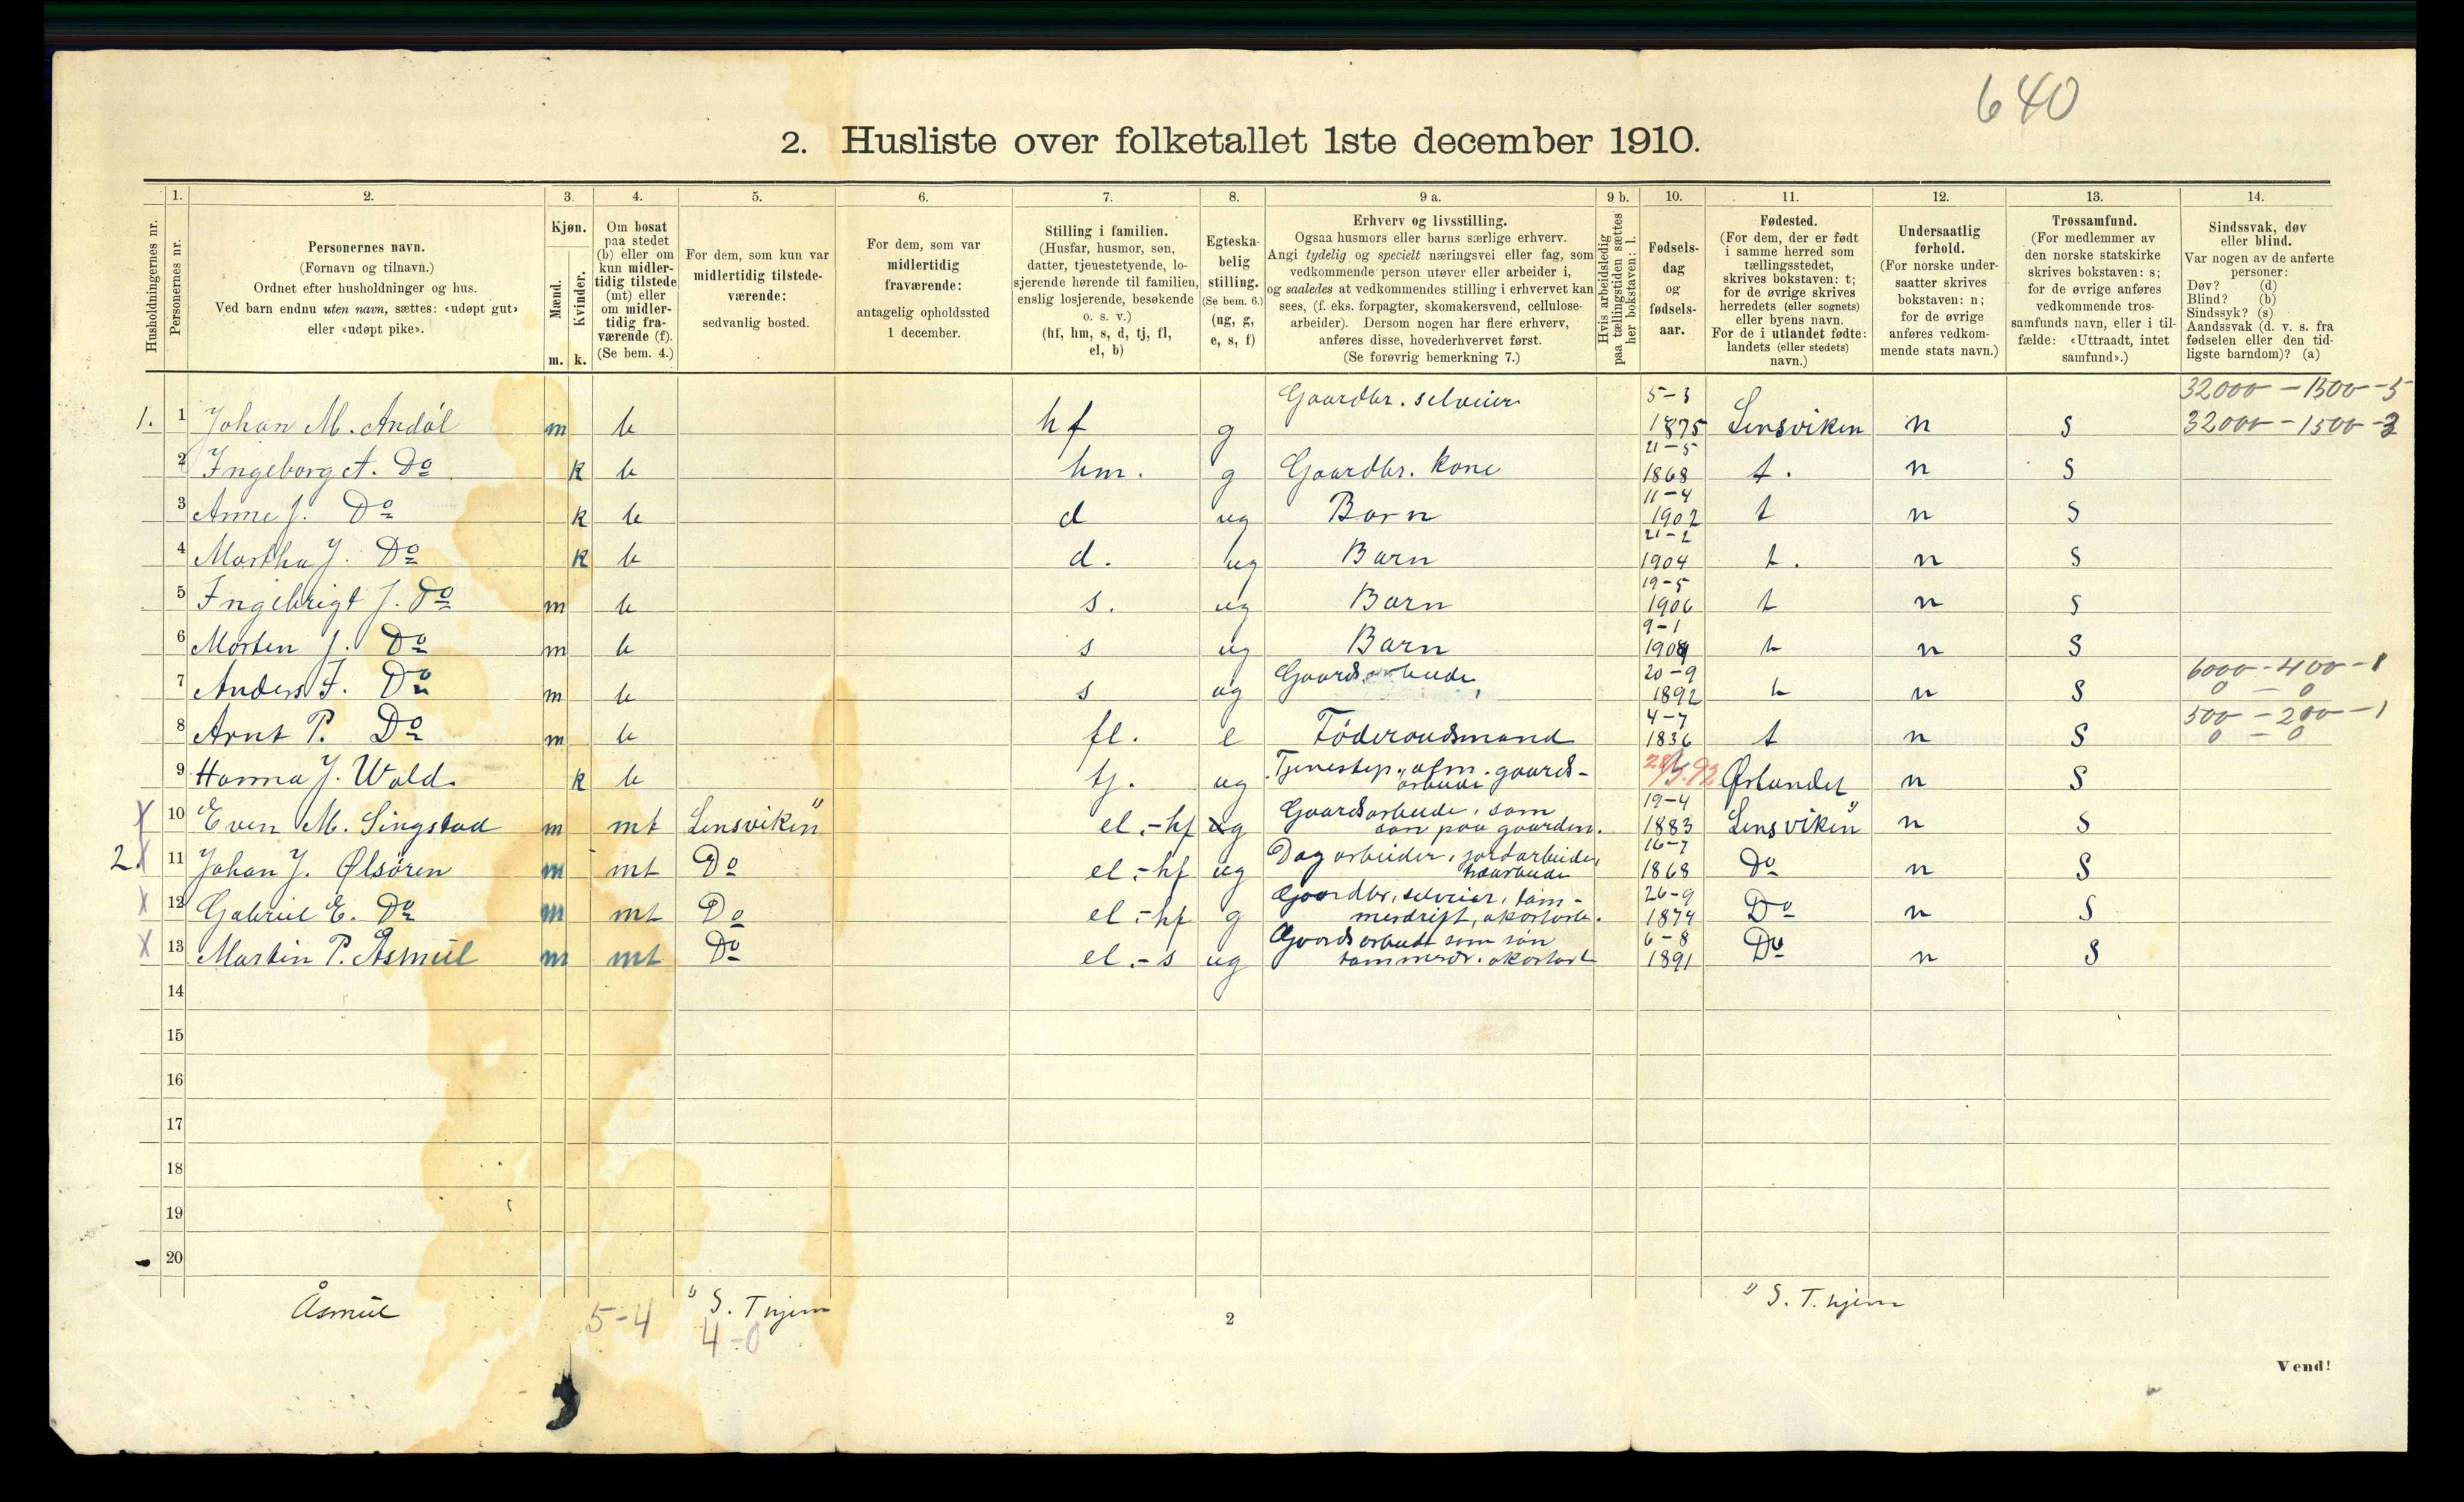 640
2. Husliste over folketallet 1ste december 1910.
Husholdningernes nr.
1.
Personernes nr.
2.
Personernes navn.
(Fornavn og tilnavn.)
Ordnet efter husholdninger og hus.
Ved barn endnu uten navn, sættes: «udøpt gut»
eller «udøpt pike».
3.
Kjøn.
Mænd.
Kvinder.
m. k.
4.
Om bosat
paa stedet
(b) eller om
kun midler-
tidig tilstede
(mt) eller
om midler-
tidig fra-
værende (f).
(Se bem. 4.)
5.
For dem, som kun var
midlertidig tilstede-
værende:
sedvanlig bosted.
6.
For dem, som var
midlertidig
fraværende:
antagelig opholdssted
1 december.
7.
Stilling i familien.
(Husfar, husmor, søn,
datter, tjenestetyende, lo-
sjerende hørende til familien,
enslig losjerende, besøkende
o. s. v.)
(hf, hm, s, d, tj, fl,
el, b)
8.
Egteska-
belig
stilling.
(Se bem. 6.)
(ug, g,
e, s, f)
9 a.
Erhverv og livsstilling.
Ogsaa husmors eller barns særlige erhverv.
Angi tydelig og specielt næringsvei eller fag, som
vedkommende person utøver eller arbeider i,
og saaledes at vedkommendes stilling i erhvervet kan
sees, (f. eks. forpagter, skomakersvend, cellulose-
arbeider). Dersom nogen har flere erhverv,
anføres disse, hovederhvervet først.
(Se forøvrig bemerkning 7.)
9 b.
Hvis arbeidsledig
paa tællingstiden sættes
her bokstaven: l.
10.
Fødsels-
dag
og
fødsels-
aar.
11.
Fødested.
(For dem, der er født
i samme herred som
tællingsstedet,
skrives bokstaven: t;
for de øvrige skrives
herredets (eller sognets)
eller byens navn.
For de i utlandet fødte:
landets (eller stedets)
navn.)
12.
Undersaatlig
forhold.
(For norske under-
saatter skrives
bokstaven: n;
for de øvrige
anføres vedkom-
mende stats navn.)
13.
Trossamfund.
(For medlemmer av
den norske statskirke
skrives bokstaven: s;
for de øvrige anføres
vedkommende tros-
samfunds navn, eller i til-
fælde: «Uttraadt, intet
samfund».)
14.
Sindssvak, døv
eller blind.
Var nogen av de anførte
personer:
Døv? (d)
Blind? (b)
Sindssyk? (s)
Aandssvak (d. v. s. fra
fødselen eller den tid-
ligste barndom)? (a)
32000 - 1300 - 5
1. 1 Johan M. Andøl m b hf g Gaardbr. selveier 5-3 1875 Lensviken n s 32000 - 1500 - 3
2 Ingeborg A. Do k b hm. g Gaardbr. kone 21-5 1868 t. n s
3 Anne J. Do k b d ug Barn 11-4 1902 t n s
4 Martha J. Do k b d. ug Barn 21-2 1904 t. n s
5 Ingebrigt J. Do m b s. ug Barn 19-5 1906 t n s
6 Morten J. Do m b s ug Barn 9-1 1909 t n s
7 Anders J. Do m b s ug Gaardsarbeide 20-9 1892 t n s 6000 - 400 - 1
0 - 0
8 Arnt P. Do m b fl. e Føderaadsmand 4-7 1836 t n s 500 - 200 - 1
0 - 0
9 Hanna J. Wold k b tj. ug Tjenestep. alm. gaards-
arbeide Ørlandet n s
X 10 Even M. Singstad m mt Lensviken" el.-hf g Gaardsarbeide, som
søn paa gaarden. 19-4 1883 Lensviken" n s
2. X 11 Johan J. Ølsøren m mt Do el.-hf ug Dagarbeider, jordarbeide,
16-7 1868 Do n s
X 12 Gabriel E. Do m mt Do el.-hf g Gaardbr, selveier, tøm-
merdrift, akortarb. 26-9 1874 Do n s
X 13 Martin P. Åsmul m mt Do el.-s ug Gaardsarbeide som søn
tømmerdr. akortarb 6-8 1891 Do n s
14
15
16
17
18
19
20
Åsmul 5-4 " S. Thjem " S. T. hjem
4-0
2
Vend!